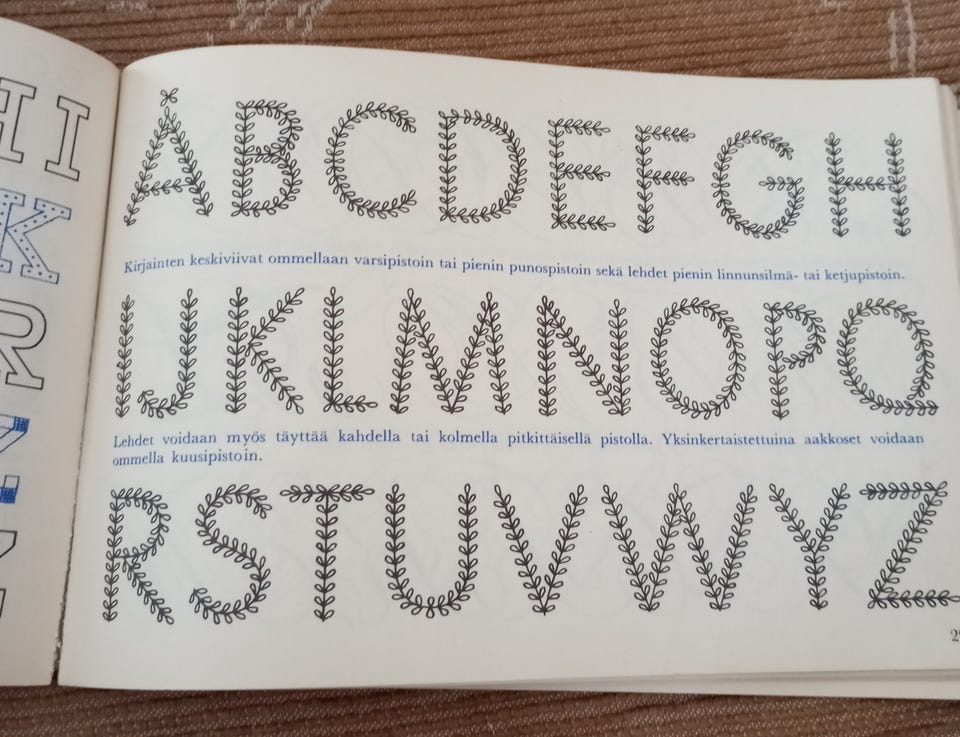 HI
K
R
ABCDEFGH
Kirjainten keskiviivat ommellaan varsipistoin tai pienin punospistoin sekä lehdet pienin linnunsilmä- tai ketjupistoin.
IJKLMNOPO
Lehdet voidaan myös täyttää kahdella tai kolmella pitkittäisellä pistolla. Yksinkertaistettuina aakkoset voidaan
ommella kuusipistoin.
RSTUVWYZ